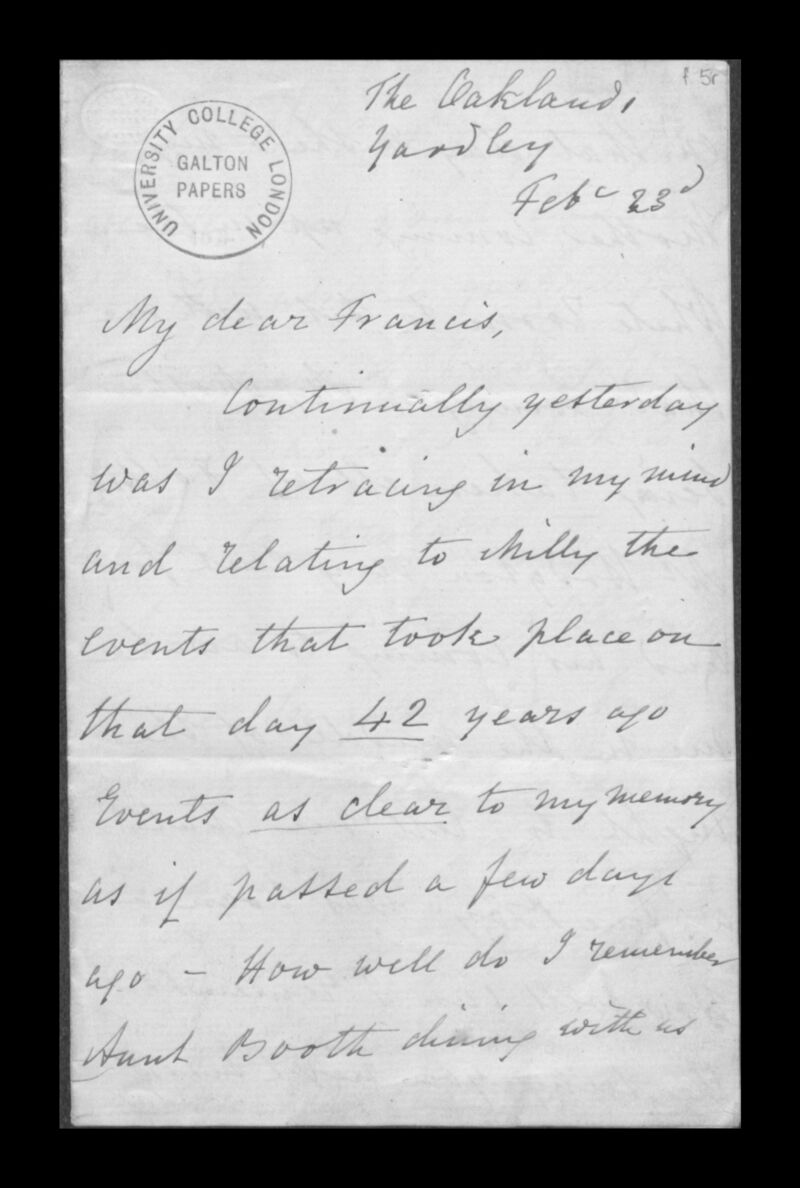 f 5r
UNIVERSITY COLLEGE LONDON
GALTON
PAPERS
The Oaklands
Yardley
Feby 23d
My dear Francis,
Continually yesterday
was I retracing in my mind
and relating to Milly the
events that took place on
that day 42 years ago
Events as clear to my memory
as if passed a few days
ago – How well do I remember
Aunt Booth dining with us